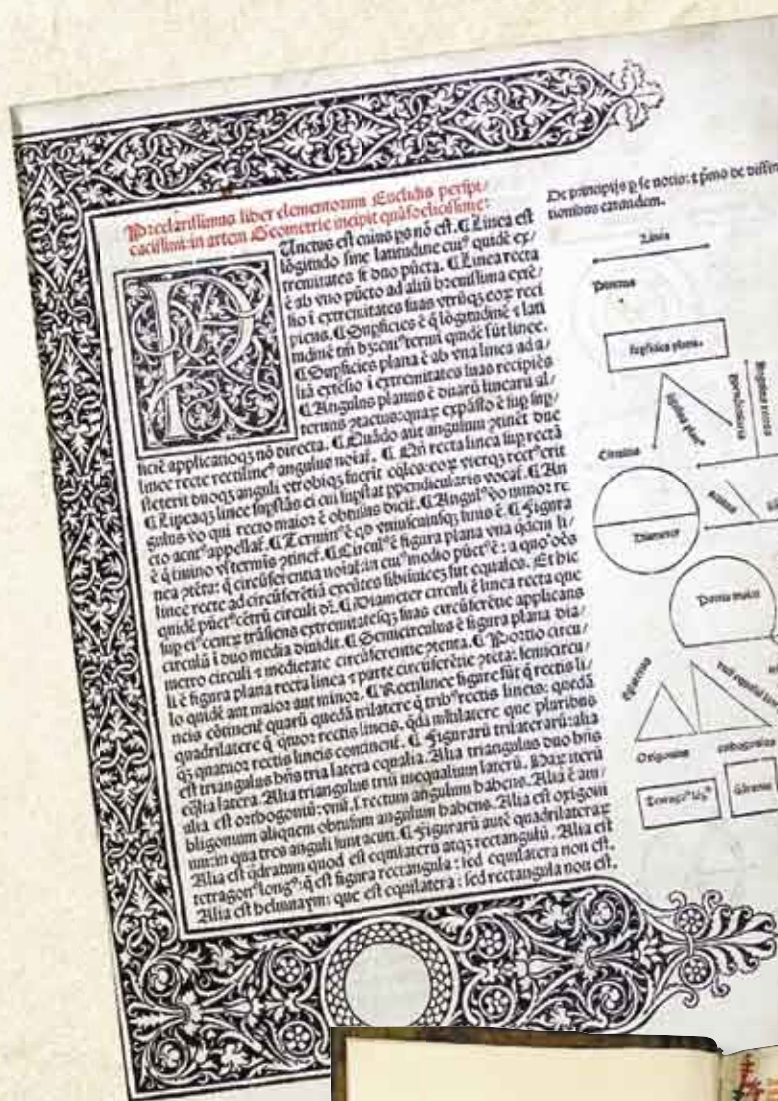 Preclarissimus liber elementorum Euclidis perspi/
cacissimi: in artem Geometrie incipit quãfoelicissime:
PUnctus est cuius ps nõ est. ¶ Linea est
lõgitudo sine latitudine cuiꝰ quidẽ ex/
tremitates st duo pũcta. ¶ Linea recta
ẽ ab vno pũcto ad aliũ breuissima extẽ/
sio i extremitates suas vtrũqꝫ eoꝝ reci
piens. ¶ Supficies ẽ q̃ lõgitudinẽ ⁊ lati
tudinẽ tm̃ hꝫ: cuiꝰ termi quidẽ sũt linee.
¶ Supficies plana ẽ ab vna linea ad a/
liã extẽsio i extremitates suas recipiẽs
¶ Angulus planus ẽ duarũ linearũ al/
ternus ꝯtactus: quaꝝ expãsio ẽ sup sup/
ficiẽ applicatioqꝫ nõ directa. ¶ Quãdo aut angulum ꝯtinẽt due
linee recte rectilineꝰ angulus noiat̃. ¶ Qñ recta linea sup rectã
steterit duoqꝫ anguli vtrobiqꝫ fuerit eq̃les: eoꝝ vterqꝫ rectꝰ erit
¶ Lineaqꝫ linee supstãs ei cui supstat ppendicularis vocat̃. ¶ An
gulus vo qui recto maior ẽ obtusus dicit̃. ¶ Angulꝰ vo minor re
cto acutꝰ appellat̃. ¶ Terminꝰ ẽ qd̃ vniuscuiusqꝫ finis ẽ. ¶ Figura
ẽ q̃ tmino vl̃ termis ꝯtinet̃. ¶ Circulꝰ ẽ figura plana vna q̃dem li/
nea ꝯtẽta: q̃ circũferentia noiat̃: in cuiꝰ medio pũctꝰ ẽ: a quo oẽs
linee recte ad circũferẽtiã exeũtes sibiinuicẽ sut equales. Et hic
quidẽ pũctꝰ cẽtrũ circuli dr̃. ¶ Diameter circuli ẽ linea recta que
sup eiꝰ centꝝ trãsiens extremitatesqꝫ suas circũferẽtie applicans
circulũ i duo media diuidit. ¶ Semicirculus ẽ figura plana dia/
metro circuli ⁊ medietate circũferentie ꝯtenta. ¶ Portio circu/
li ẽ figura plana recta linea ⁊ parte circũferẽtie ꝯtẽta: semicircu/
lo quidẽ aut maior aut minor. ¶ Rectilinee figure sũt q̃ rectis li/
neis cõtinent̃ quarũ quedã trilatere q̃ tribꝰ rectis lineis: quedã
quadrilatere q̃ qtuor rectis lineis. q̃dã mltilatere que pluribus
qꝫ quatuor rectis lineis continent̃. ¶ Figurarũ trilaterarũ: alia
est triangulus hñs tria latera equalia. Alia triangulus duo hñs
eq̃lia latera. Alia triangulus triũ inequalium laterũ. Haꝝ iterũ
alia est orthogoniũ: vnũ .s. rectum angulum habens. Alia ẽ am/
bligonium aliquem obtusum angulum habens. Alia est oxigoni
um: in qua tres anguli sunt acuti. ¶ Figurarũ autẽ quadrilateraꝝ
Alia est q̃dratum quod est equilaterũ atqꝫ rectangulũ. Alia est
tetragonꝰ longꝰ: q̃ est figura rectangula: sed equilatera non est.
Alia est helmuaym: que est equilatera: sed rectangula non est.
De principijs p se notis: ⁊ pmo de diffini
tionibus earundem.
Linea
Punctus
Supficies plana.
Circulus
Diameter
Portio maior
Oxigonius
orthogonius
Tetragonꝰ lõgꝰ